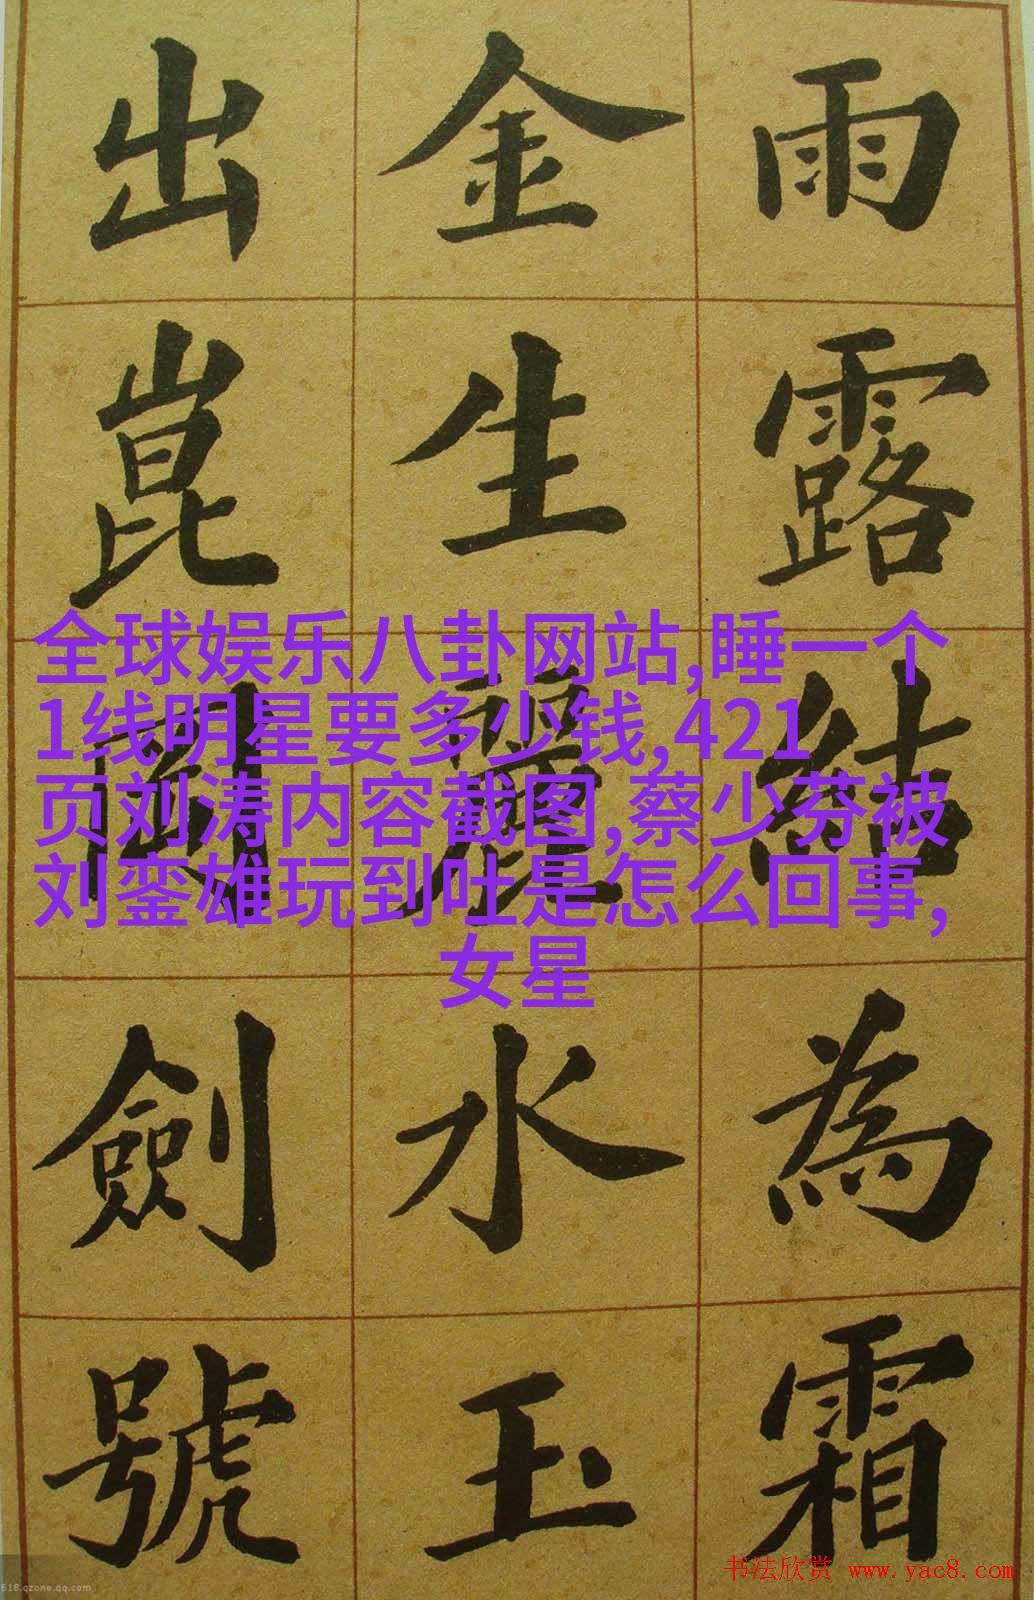 雨露結為霜
金生麗水玉
出崑岡劍號
全球娱乐八卦网站,睡一个
1线明星要多少钱,421
页刘涛内容截图,蔡少芬被
刘銮雄玩到吐是怎么回事,
女星
书法欣赏 www.yac8.com
618.qzone.qq.com